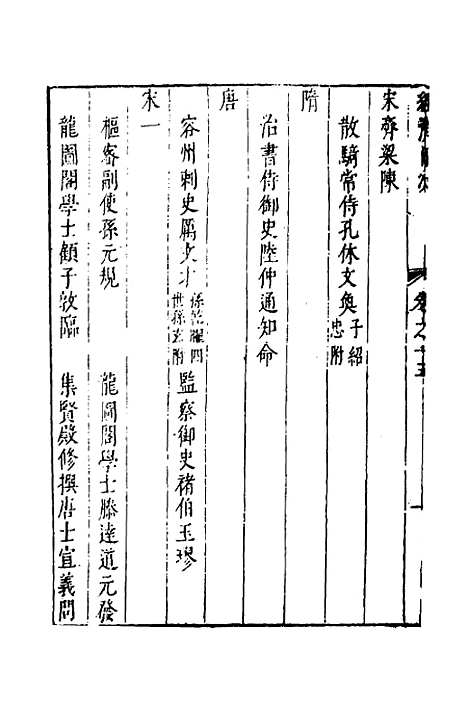 卷之十五
宋齊梁陳
散騎常侍孔休文奐 子紹忠附
隋
治書侍御史陸仲通知命
唐
容州刺史厲文才 孫乾耀四世孫玄附 監察御史褚伯玉璆
宋一
樞密副使孫元規 龍圖閣學士滕達道元發
龍圖閣學士顧子敦臨 集賢殿修撰唐士宣義問